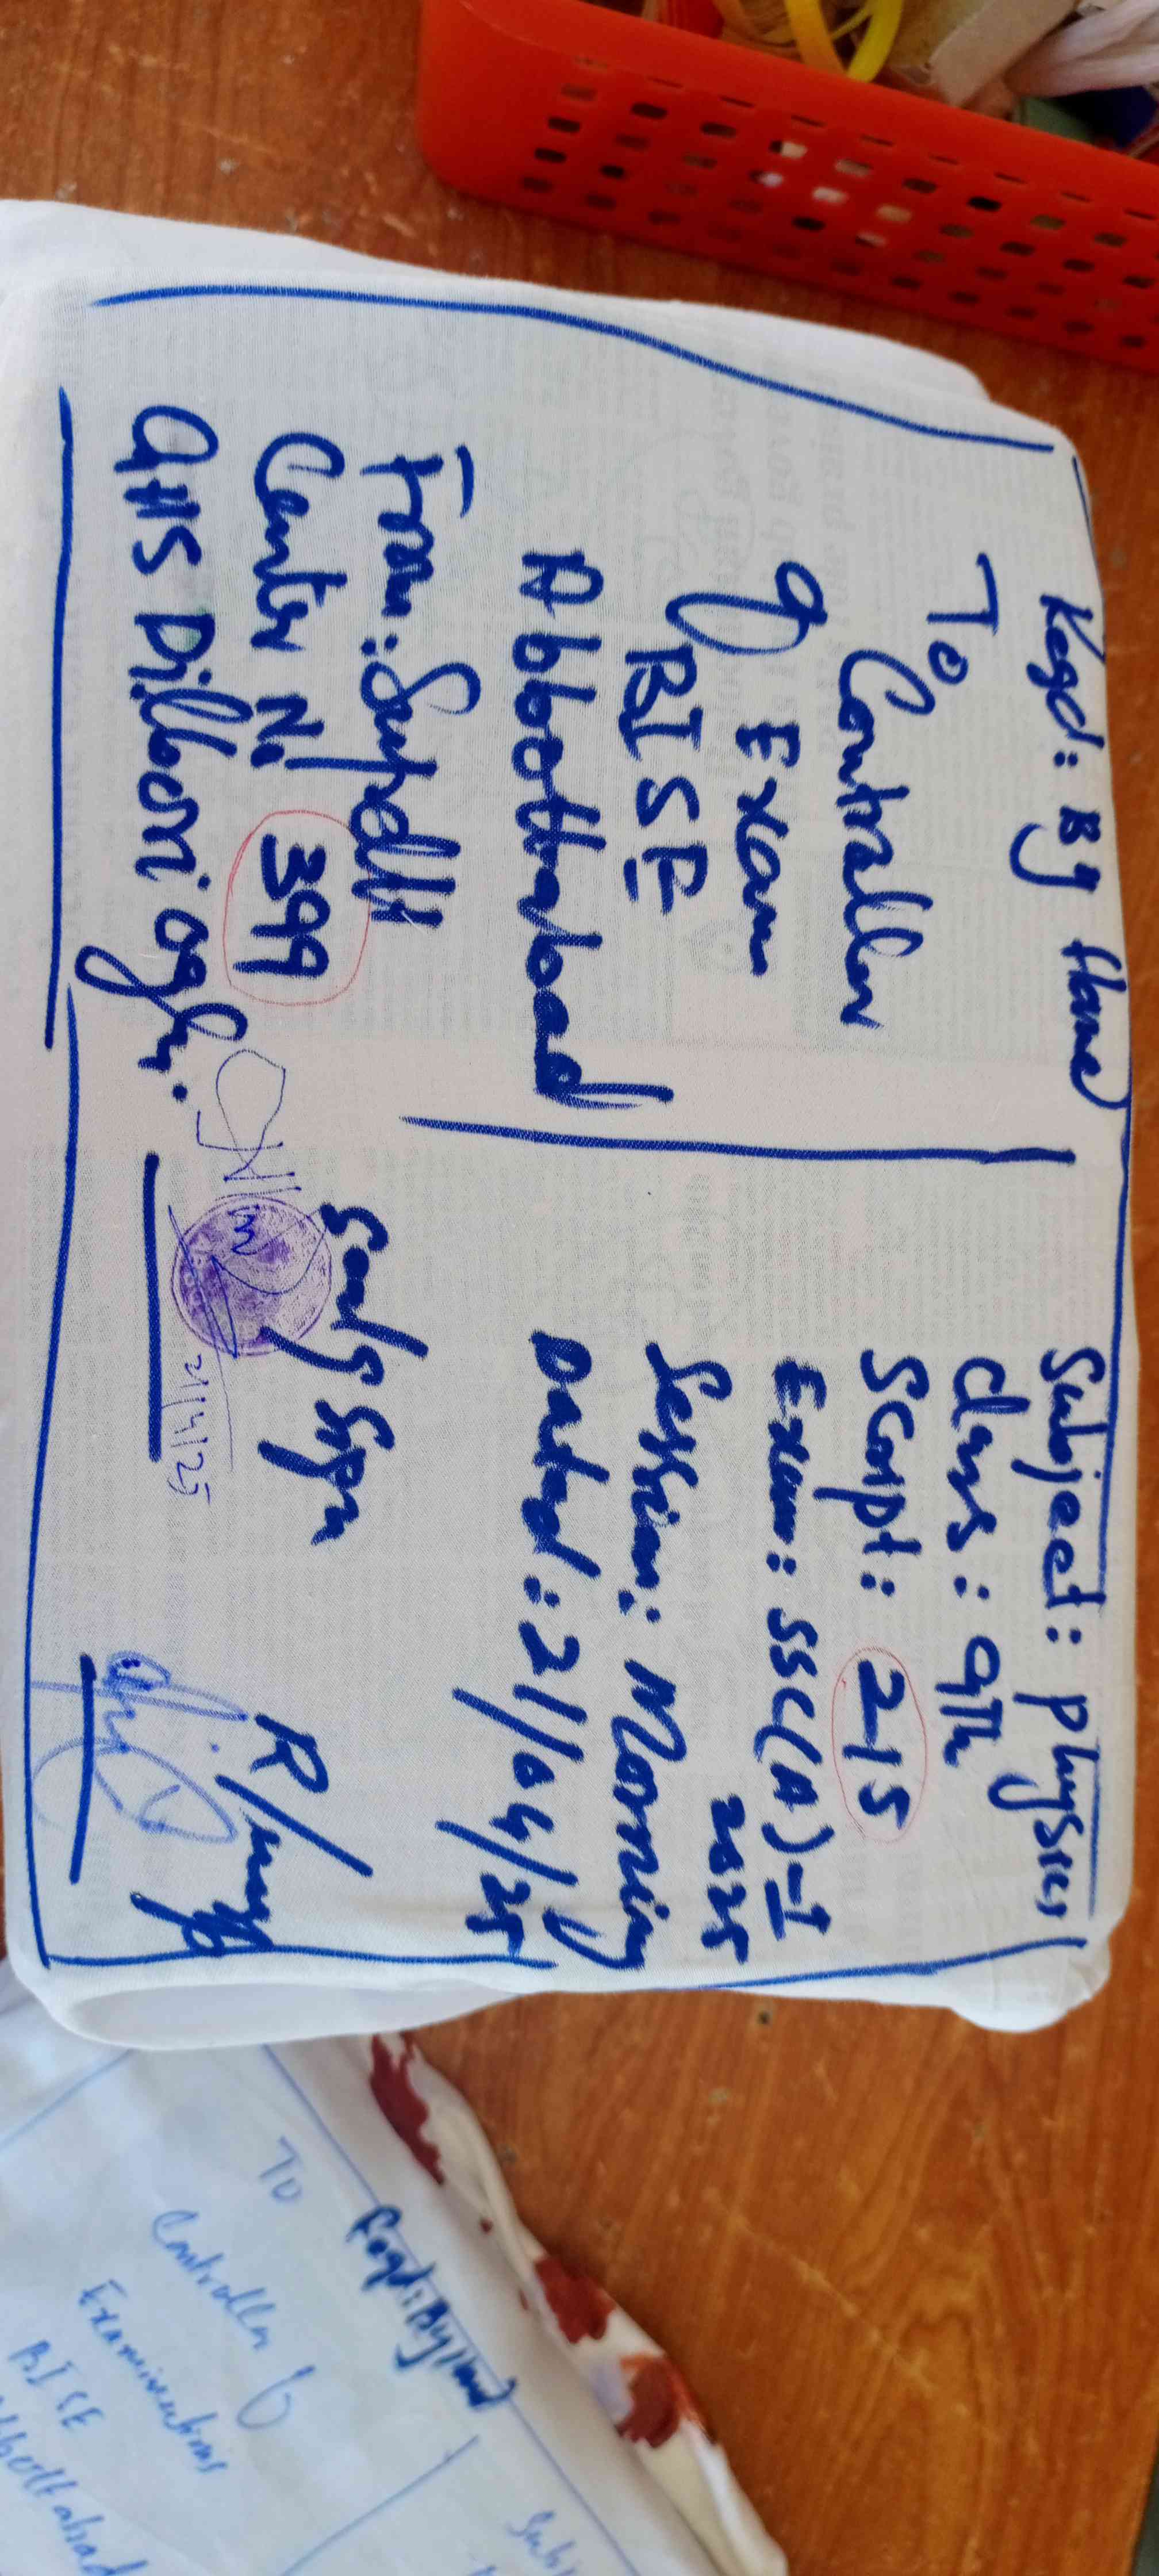 Regd: By Hand
To
Controller
of Exam
BISE
Abbottabad
From: Supdtt
Center No 399
GHS Dilbori oghi.
Subject: physics
class: 9th
Script: 215
Exam: SSC(A)-I
2025
Session: Morning
Dated: 21/04/25
Sealg Sign
21/4/25
R/
Regd: By Hand
To
Controller of
Examinations
BISE
Abbottabad